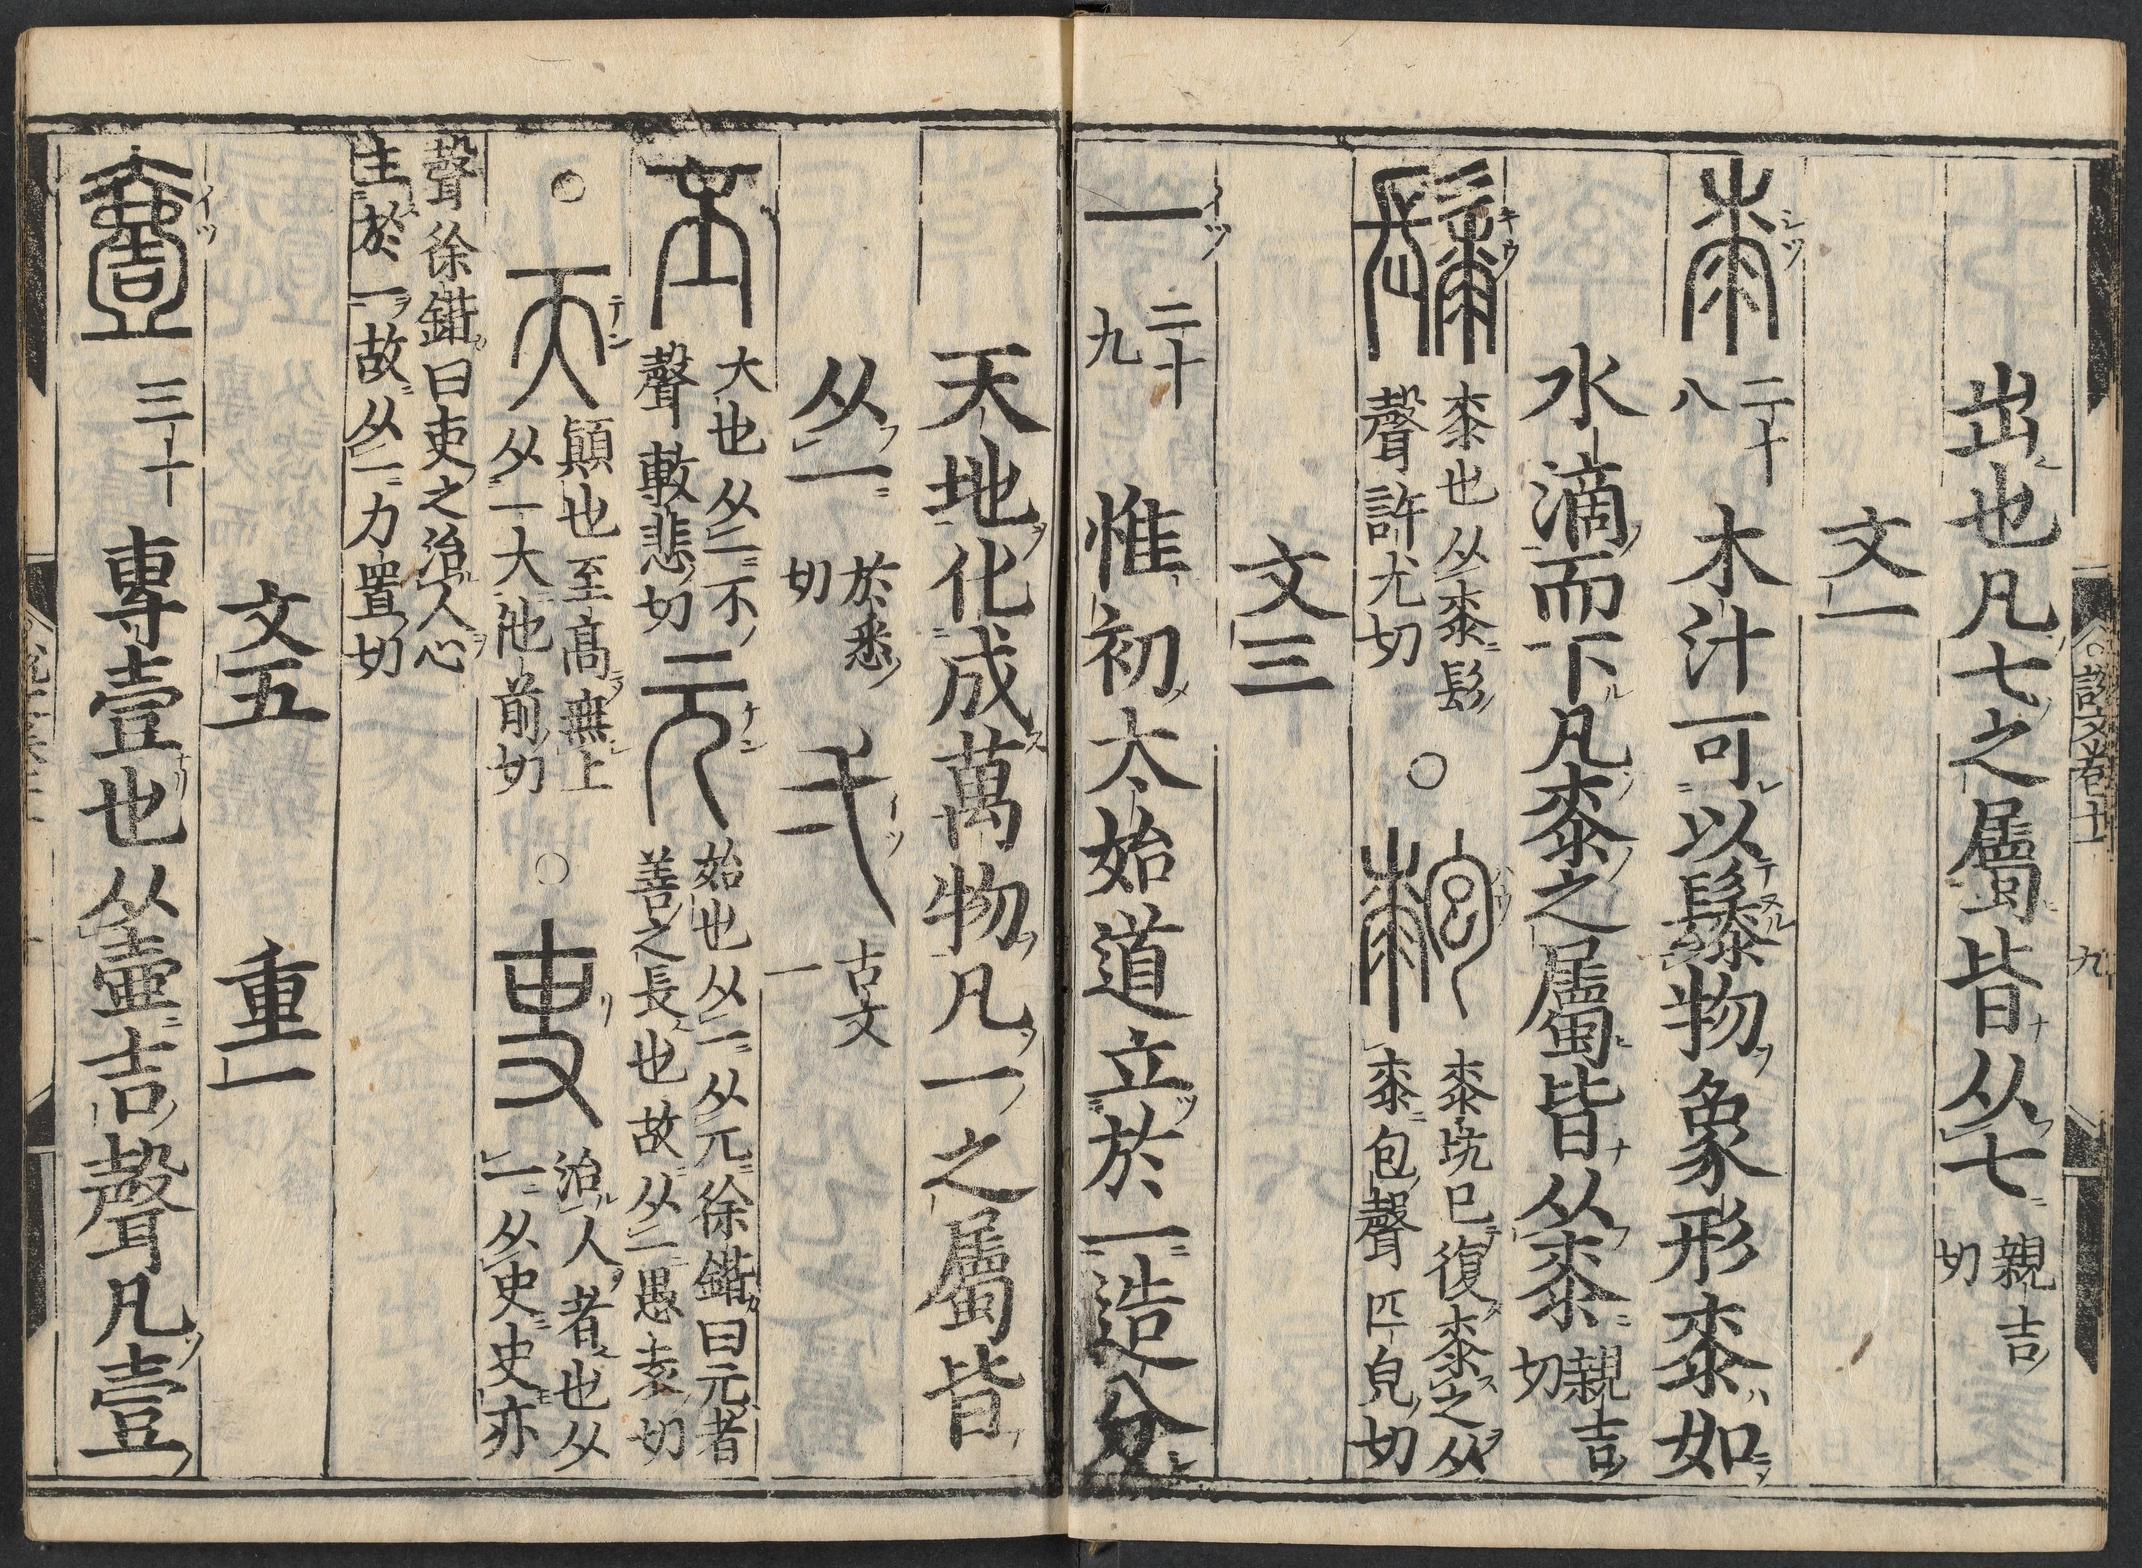 說文卷十
九
出也凡七之屬皆从七 親吉切
文一
桼 シツ 二十八 木汁可以䰍物象形桼如
水滴而下凡桼之屬皆从桼 親吉切
䰍 キウ 桼也从桼髟聲許尤切 ○ 𣠿 桼垸已復桼之从桼包聲匹皃切
文三
一 イツ 二十九 惟初太始道立於一造分
天地化成萬物凡一之屬皆
从一 於悉切 弌 イツ 古文一
丕 大也从一不聲敷悲切 元 ケン 始也从一从兀徐鍇曰元者善之長也故从一愚袁切
○ 天 テン 顚也至高無上从一大他前切 ○ 吏 リ 治人者也从一从史史亦
聲徐鍇曰吏之治人心主於一故从一力置切
文五 重一
壹 イツ 三十 專壹也从壷吉聲凡壹